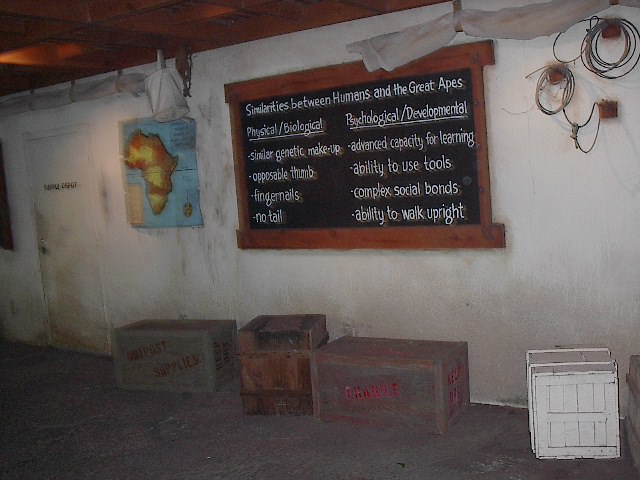 Similarities between Humans and the Great Apes
Physical/Biological
-similar genetic make-up
-opposable thumb
-fingernails
-no tail
Psychological/Developmental
-advanced capacity for learning
-ability to use tools
-complex social bonds
-ability to walk upright
SUPPLY DEPOT
OUTPOST
SUPPLIES
FRAGILE